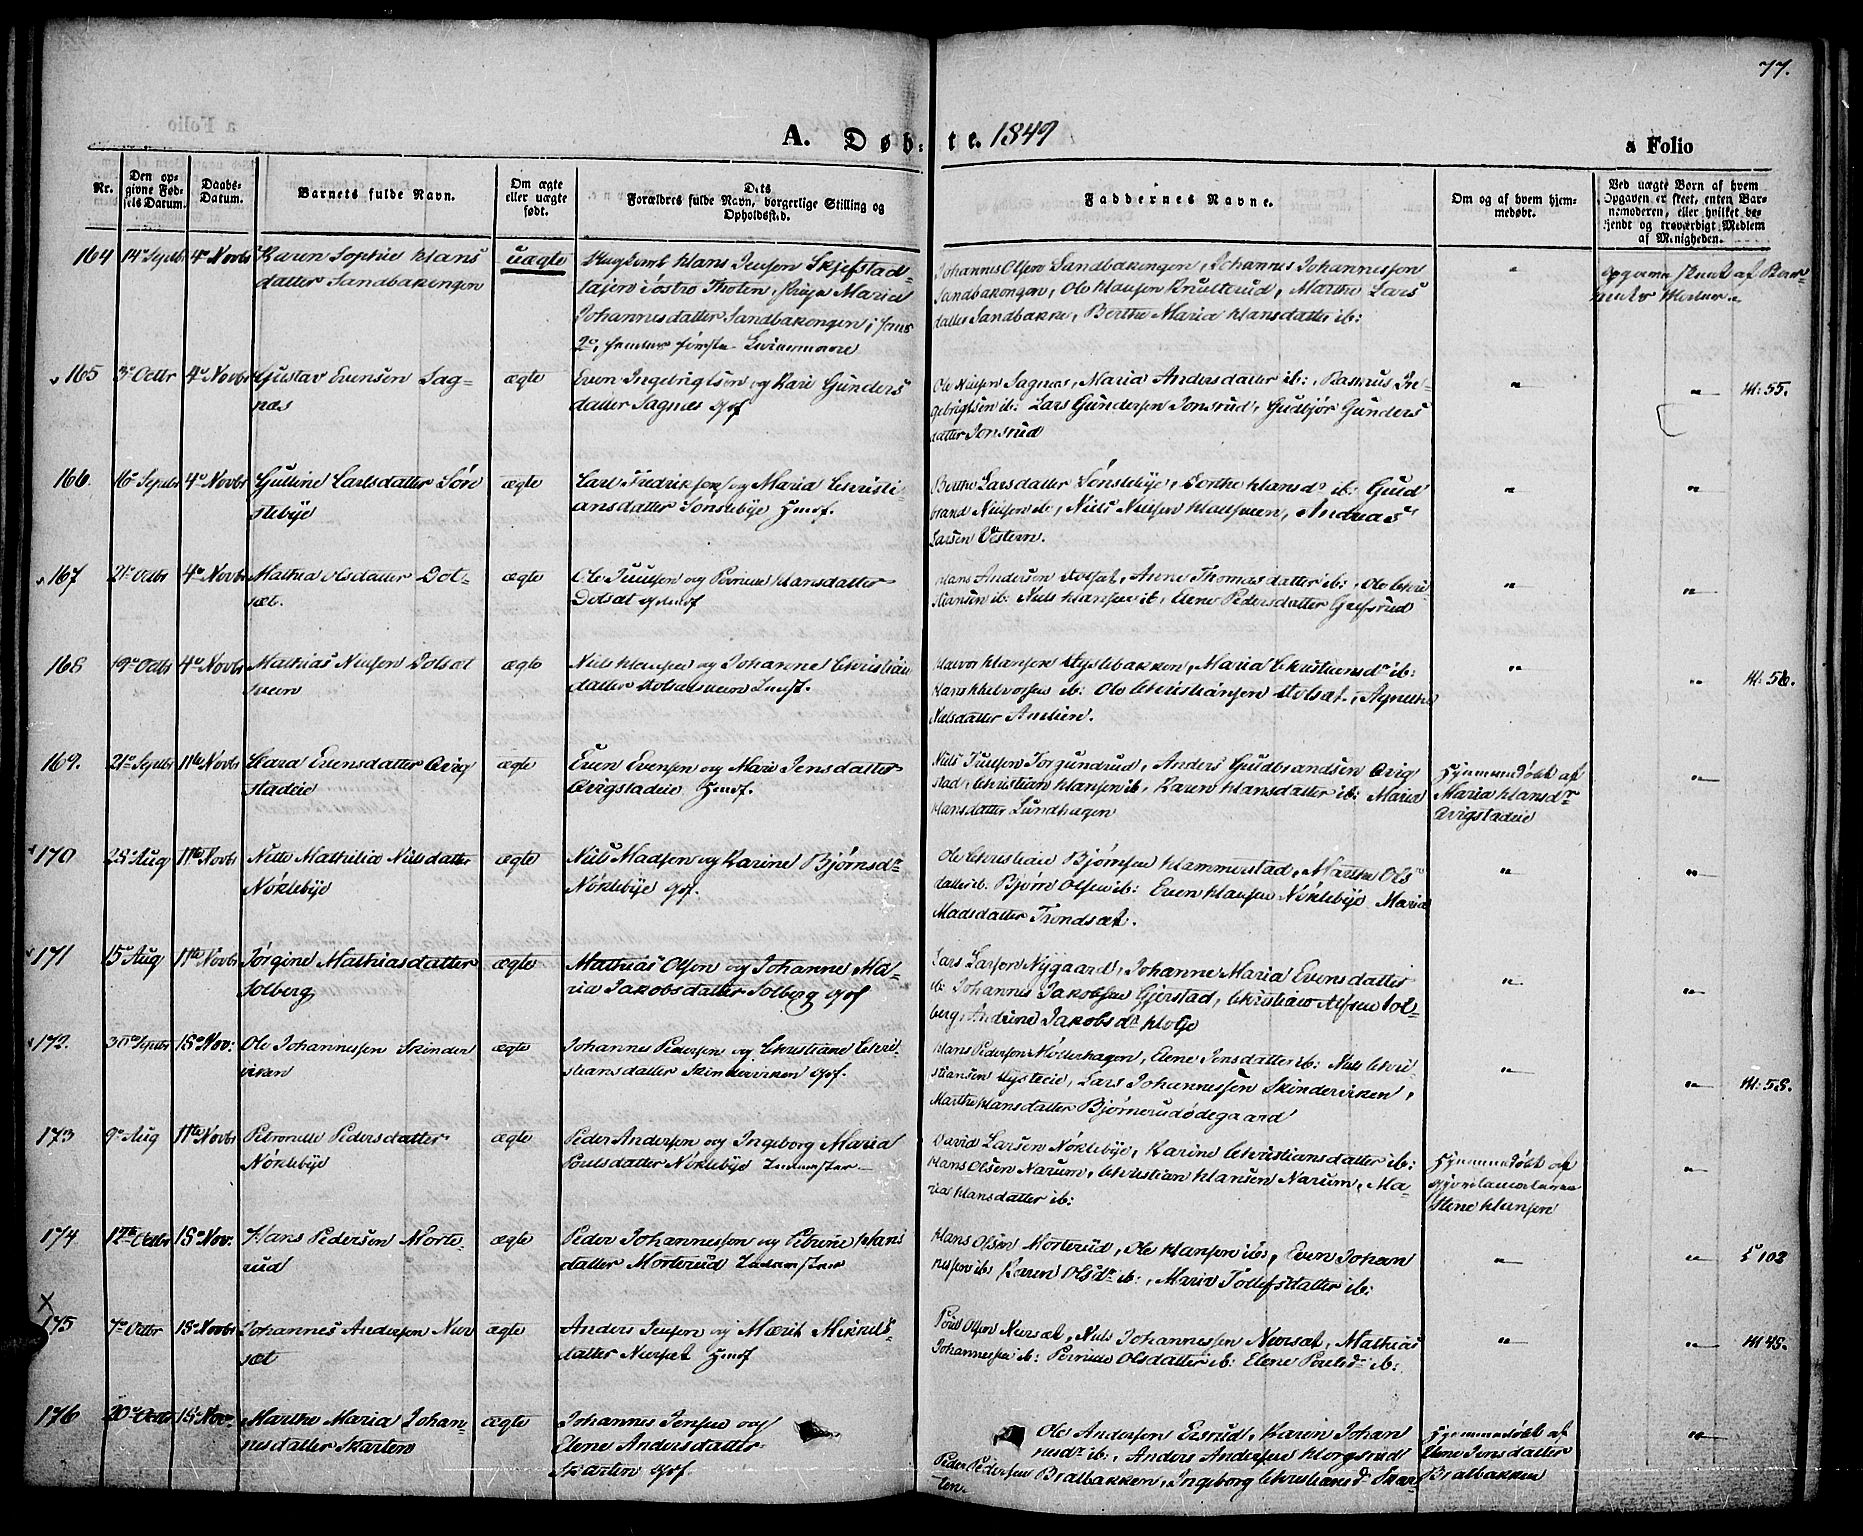 77.
A. Døb- te. 1849
a Folio
Nr.
Den op-
givne Fød-
sels Datum.
Daabs-
Datum.
Barnets fulde Navn.
Om ægte
eller uægte
født.
Dets
Forældres fulde Navn, borgerlige Stilling og
Opholdssted.
Faddernes Navne.
Om og af hvem hjem-
medøbt.
Ved uægte Børn af hvem
Opgaven er skeet, enten Bar-
nemoderen, eller hvilket be-
kjendt og troværdigt Medlem
af Menigheden.
164 14de Septbr 4de Novbr Karen Sophie Hans
datter Sandbakengen
uægte
Hans Jensen Skjefstad-
i østre Thoten, Pige Maria
Johannesdatter Sandbakengen,
Johannes Olsen Sandbakengen, Johannes Johannessen
Sandbakengen, Ole Hansen Knutterud, Marthe Lars
datter Sandbakke, Berthe Maria Hansdatter ib:
af Bar-
165 3de Octbr 4de Novbr Gustav Evensen Sag-
næs
ægte
Even Ingebrigtsen og Kari Gunders
datter Sagnæs Gbf
Ole Nielsen Sagnæs, Maria Andersdatter ib:, Rasmus In-
gebrigtsen ib: Lars Gundersen Jonsrud, Gudbjør Gunders
datter Jonsrud
" " M: 55.
166. 16de Septbr 4de Novbr Gulline Carlsdatter Søn
stebye
ægte
Carl Fredriksen og Maria Christi-
ansdatter Sønstebye Hmdf.
Berthe Larsdatter Sønstebye, Dorthe Hansdr ib: Guld
brand Nielsen ib, Niels Nielsen Klausmen, Andreas
Larsen Western.
" "
167 21de Octbr 4de Novbr Mathea Olsdatter Dot-
sæt.
ægte
Ole Juulsen og Pernille Hansdatter
Dotsæt
Hans Andersen Dotsæt, Anne Thomasdatter ib:, Ole Chri-
stiansen ib: Niels Hansen ib, Elene Pedersdatter
" "
168 19de Octbr 4de Novbr Mathias Nielsen Dotsæt
sveen
ægte
Niels Hansen og Johanne Christian
datter Dotsætsveen Indst.
Halvor Hansen Hystebakken, Maria Christiansdr ib:
Hans Halvorsen ib: Ole Christiansen Dotsæt, Agnethe
Nielsdatter
" " M: 56.
169. 21de Septbr 11te Novbr Evensdatter Qvig
stadeie
ægte
Even Evensen og Mari Jensdatter
Qvigstadeie Hmdf.
Niels Juulsen Torgundrud, Anders Gudbrandsen Qvig
stad, Christian Hansen ib, Karen Hansdatter ib: Maria
Hansdatter Lundhagen
Hjemmedøbt af
Maria Hansdr
Qvigstadeie
"
170 28de Aug 11te Novbr Nette Mathilia Nilsdatter
Nøklebye
ægte
Niels Madsen og Karine Bjørnsdr
Nøklebye Gbf.
Ole Christian Bjørnsen Hammerstad, Marthe Ols
datter ib. Bjørn Olsen ib: Even Hansen Nøklebye Maria
Madsdatter Trondsæt.
" "
171 15de Aug 11te Novbr Jørgine Mathiasdatter
Solberg
ægte
Mathias Olsen og Johanne Ma-
ria Jakobsdatter Solberg Gbf
Lars Larsen Nygaard, Johanne Maria Evensdatter
ib: Johannes Jakobsen Gjerstad, Christian Alfsen Sol-
berg, Andrine Jakobsdr
" "
172. 30de Septbr 18de Nov: Ole Johannessen Skinder
viken
ægte
Johannes Pedersen og Christiane Chri-
stiansdatter Skinderviken Gbf.
Hans Pedersen Møllerhagen, Elene Jonsdatter ib: Niels Chri-
stiansen Hysteeie, Lars Johannessen Skinderviken,
Marthe Hansdatter Bjørnerudødegaard
" " M: 58.
173 9de Aug 11te Novbr Petronelle Pedersdatter
Nøklebye
ægte
Peder Andersen og Ingeborg Maria
Poulsdatter Nøklebye
David Larsen Nøklebye, Karine Christiansdatter ib:
Hans Olsen Narum, Christian Hansen Narum, Ma-
ria Hansdatter ib:
Hjemmedøbt af
Stene Hansen
"
174 12te Octbr 18de Nov. Hans Pedersen Morte-
rud
ægte
Peder Johannessen og Petrine Hans
datter Morterud
Hans Olsen Morterud, Ole Hansen ib:, Even Johan
nessen ib: Karen Olsdr ib:, Maria Tollefsdatter ib:
" " 5 102
X
175 7de Octbr 18de Novbr Johannes Andersen Nær
sæt
ægte
Anders Jensen og Marit Mikkels-
datter Nærsæt Hmdf
Poul Olsen Nærsæt, Niels Johannessen Nærsæt, Mathias
Johannessen ib: Pernille Olsdatter ib: Elene Poulsdr ib:
" " M 45.
176 20de Octbr 18de Nov. Marthe Maria Johan-
nesdatter Skarten
ægte
Johannes Jensen og
Elene Andersdatter
Skarten Gbf.
Ole Andersen Ersrud, Karen Johan
nesdr ib:, Anders Andersen Klorgsrud
Peder Pedersen Bratbakken, Ingeborg Christiansdr Skar
ten.
Hjemmedøbt af
Elene Jonsdatter
Bratbakken
"